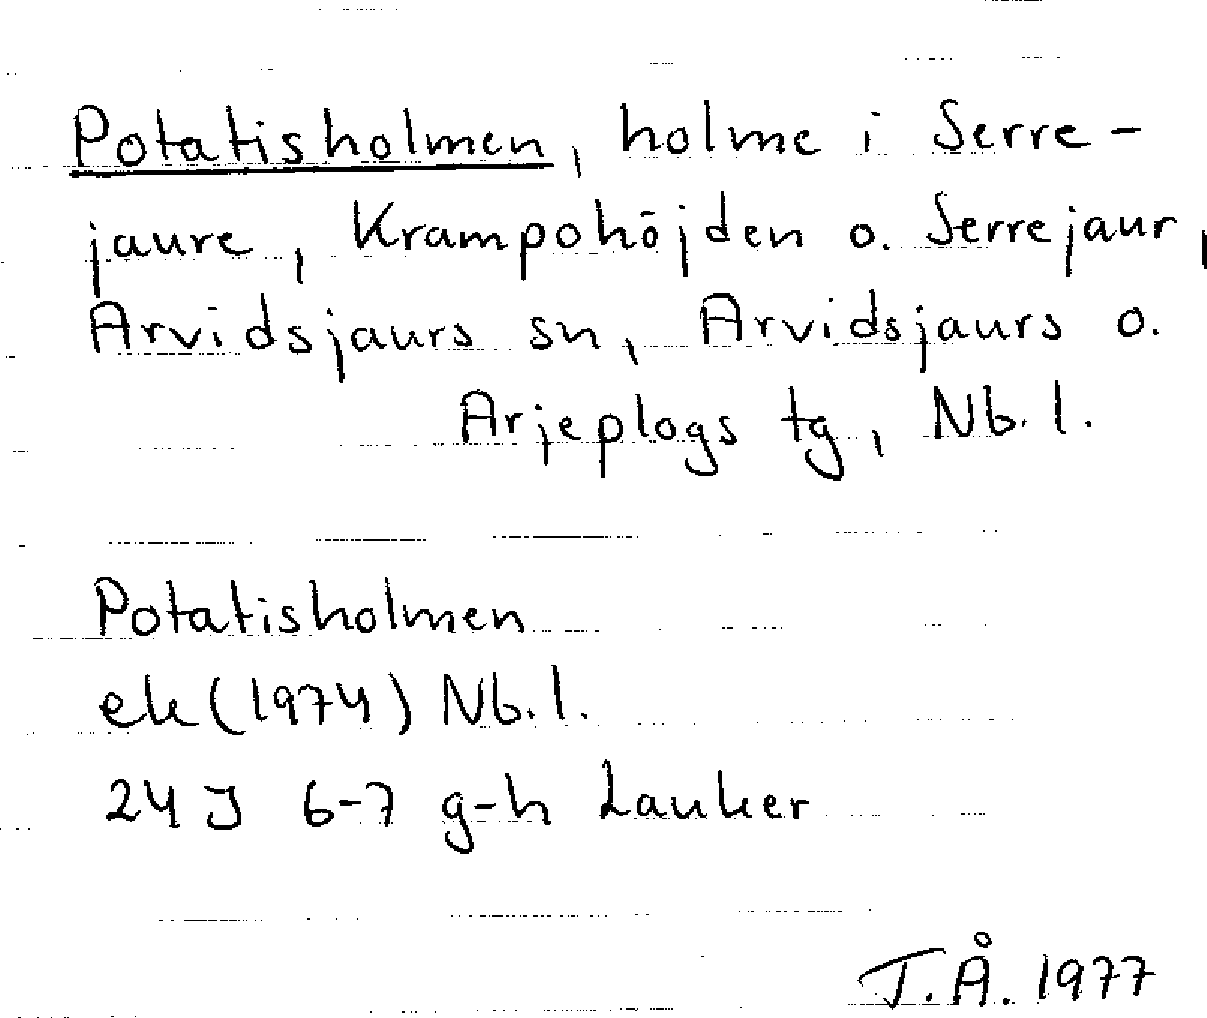 Potatisholmen, holme i Serre-
jaure, Krampohöjden o. Serrejaur,
Arvidsjaurs sn, Arvidsjaurs o.
Arjeplogs tg, Nb. l.
Potatisholmen
ek (1974) Nb. l.
24 J 6-7 g-h Lauker
T.Å. 1977